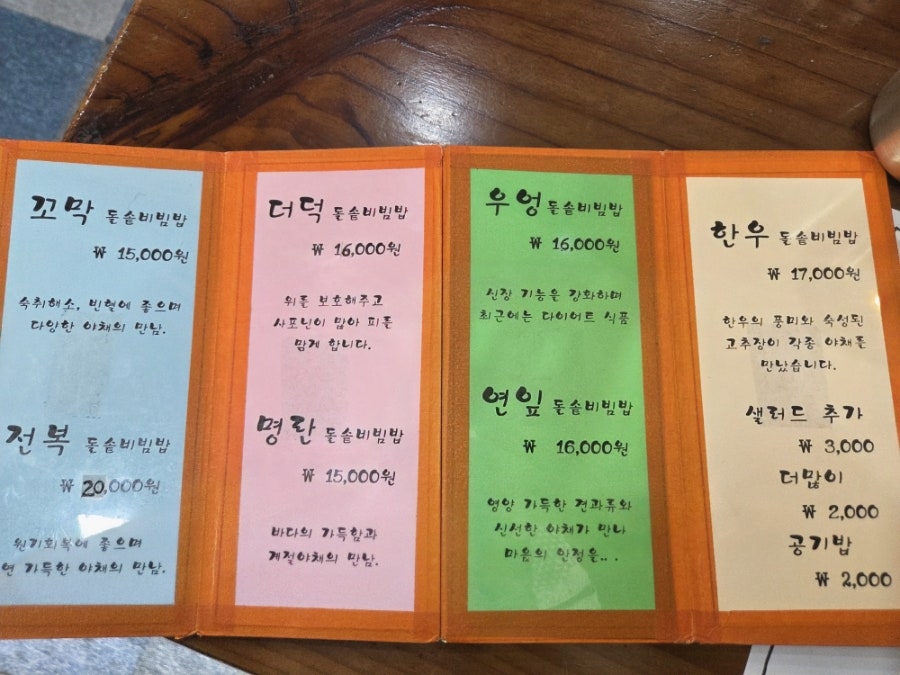 꼬막 돌솥비빔밥
₩ 15,000원
숙취해소, 빈혈에 좋으며
다양한 야채의 만남.
전복 돌솥비빔밥
₩ 20,000원
원기회복에 좋으며
연 가득한 야채의 만남.
더덕 돌솥비빔밥
₩ 16,000원
위를 보호해주고
사포닌이 많아 피를
맑게 합니다.
명란 돌솥비빔밥
₩ 15,000원
바다의 가득함과
계절야채의 만남.
우엉 돌솥비빔밥
₩ 16,000원
신장 기능을 강화하며
최근에는 다이어트 식품
연잎 돌솥비빔밥
₩ 16,000원
영양 가득한 견과류와
신선한 야채가 만나
마음의 안정을...
한우 돌솥비빔밥
₩ 17,000원
한우의 풍미와 숙성된
고추장이 각종 야채를
만났습니다.
샐러드 추가
₩ 3,000
더많이
₩ 2,000
공기밥
₩ 2,000